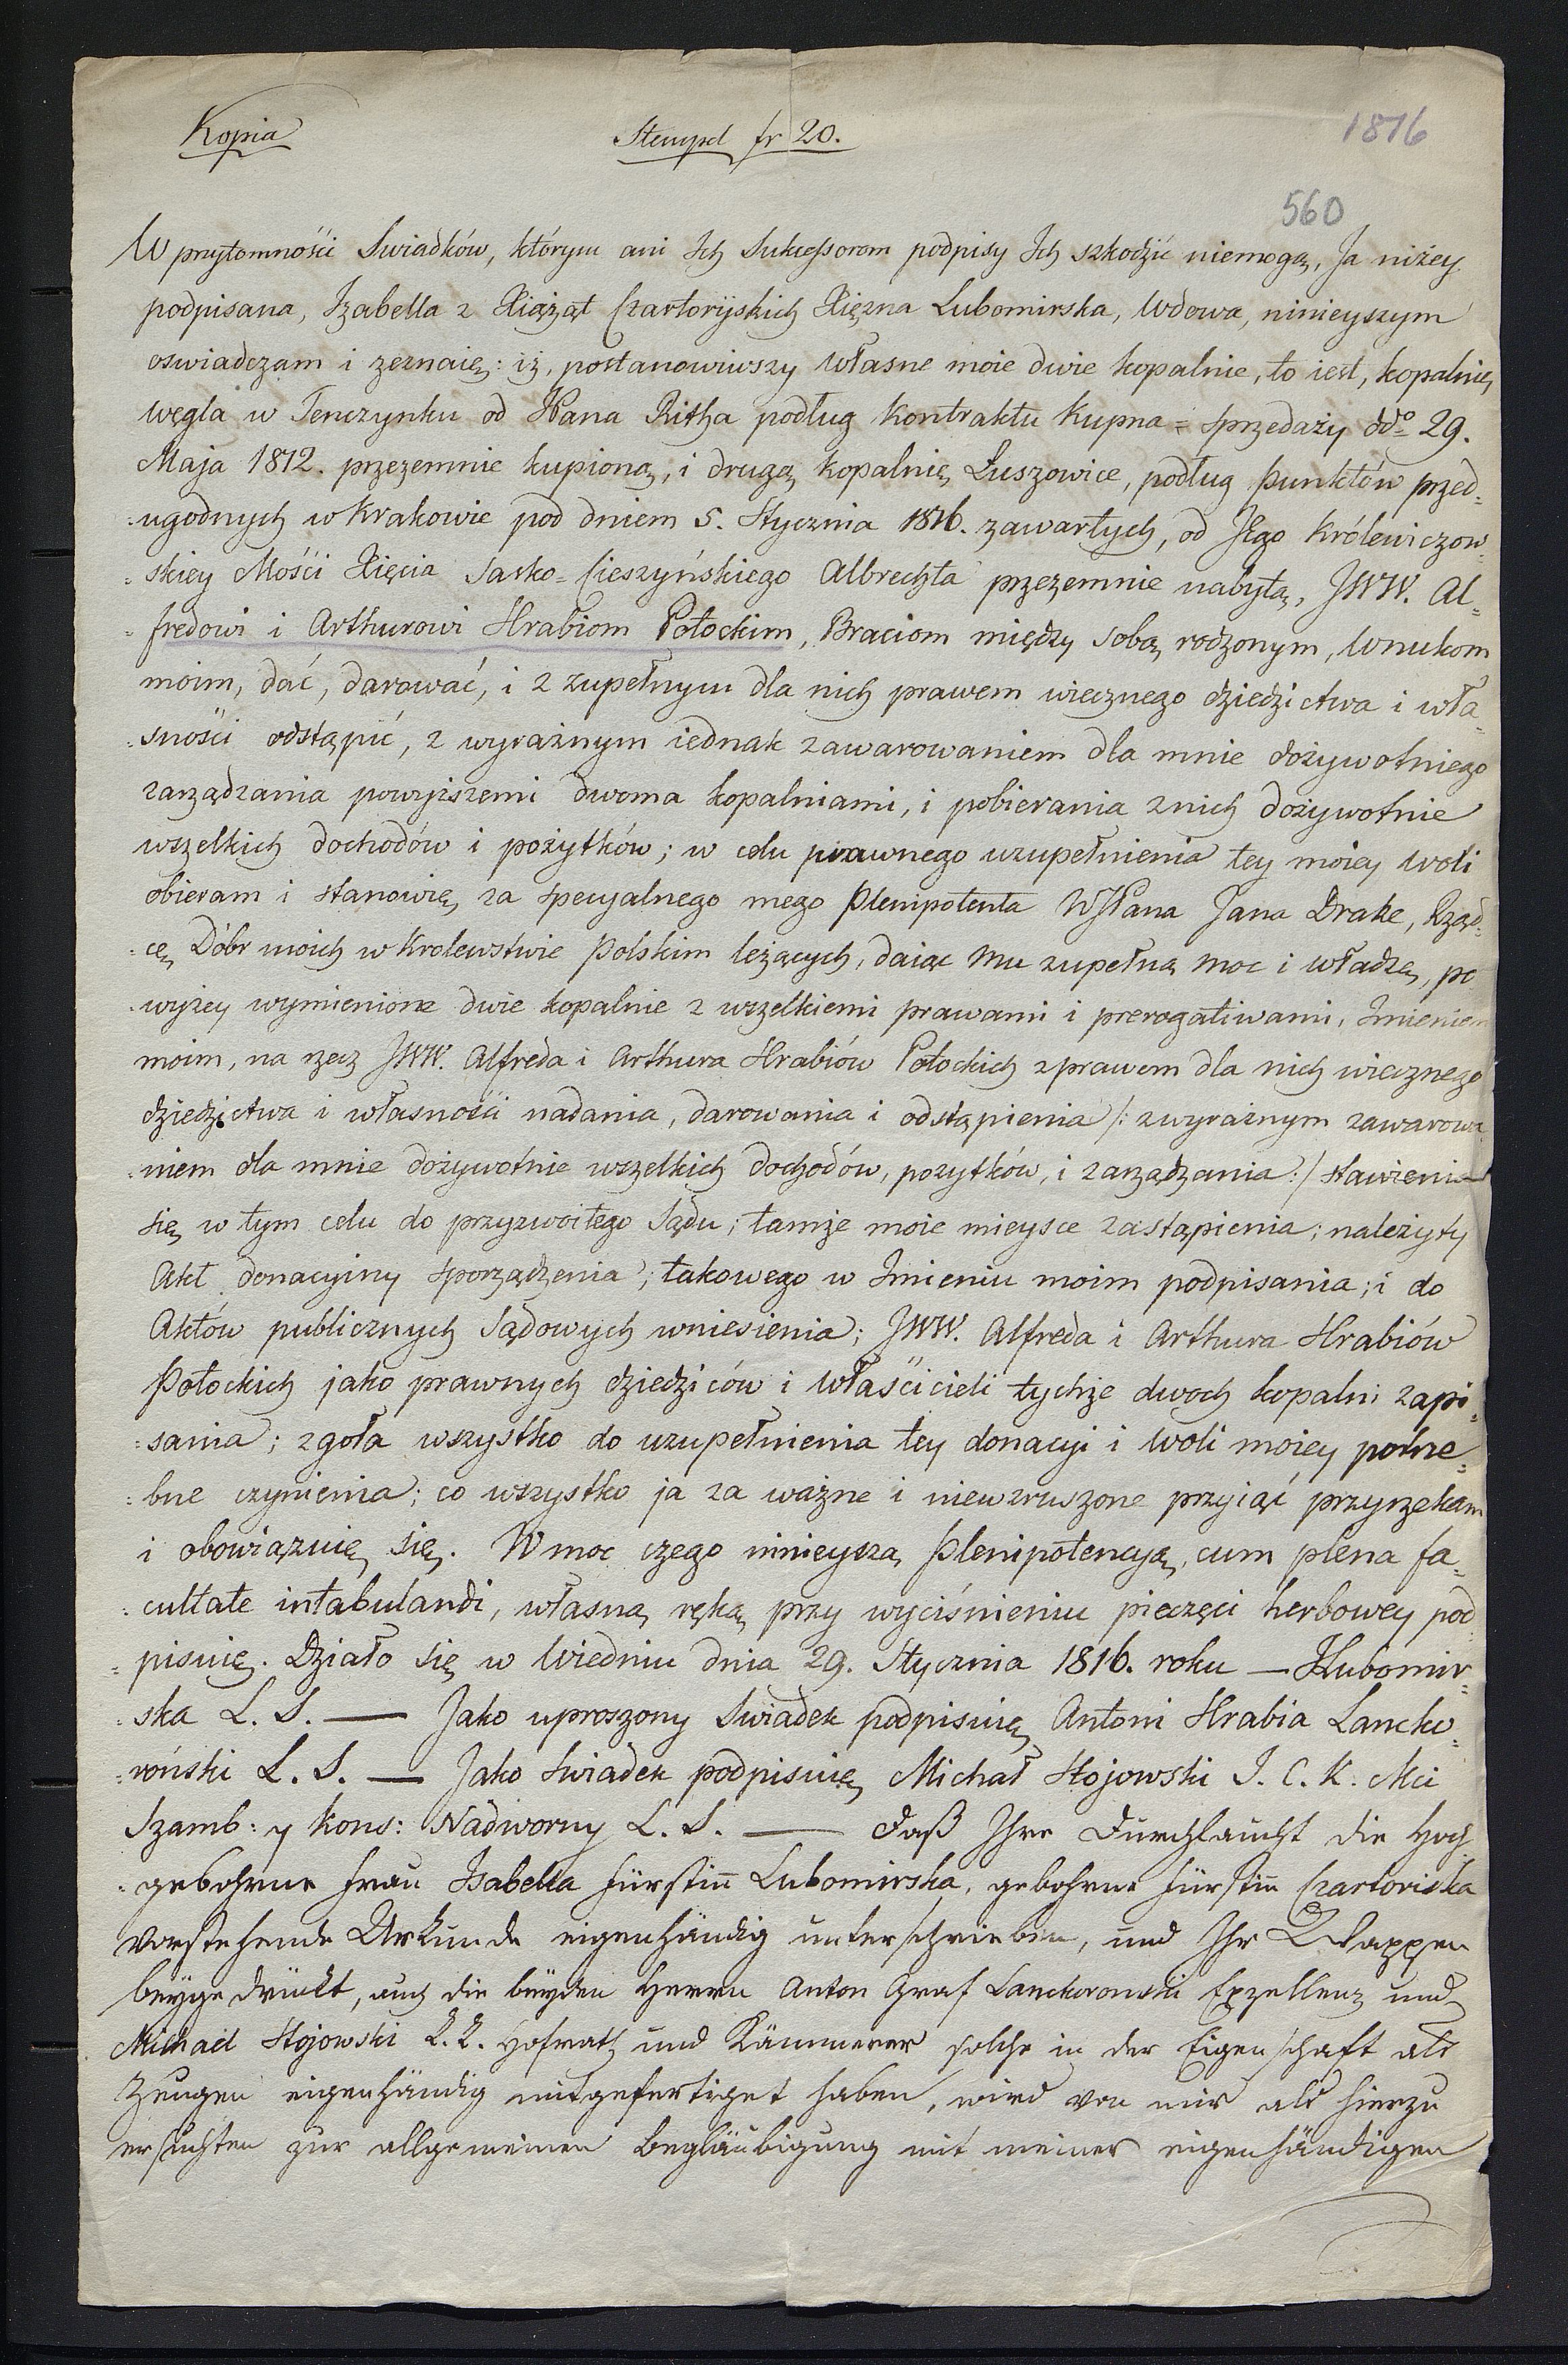 Kopia
Stempel fr 20.
1816
560
W przytomności Swiadków, którym ani Ich Sukcessorom podpisy Ich szkodzić niemogą, Ja niżey
podpisana, Izabella z Xiążąt Czartoryskich Xiężna Lubomirska, Wdowa, ninieyszym
oswiadczam i zeznaię: iż, postanowiwszy Własne moie dwie kopalnie, to iest, kopalnię
węgla w Tenczynku od JPana Ritha podług Kontraktu Kupna = sprzedaży ddo 29.
Maja 1812. przezemnie kupioną, i drugą kopalnię Luszowice, podług Punktów przed-
:ugodnych w Krakowie pod dniem 5. Stycznia 1816. zawartych, od JEgo Królewiczow-
:skiey Mości Xięcia Sasko=Cieszyńskiego Albrechta przezemnie nabytą, JWW. Al-
:fredowi i Arthurowi Hrabiom Potockim, Braciom między Sobą rodzonym, Wnukom
moim, dać, darować, i z zupełnym dla nich prawem wiecznego dziedzictwa i wła-
:sności odstąpić, z wyraźnym iednak zawarowaniem dla mnie dożywotniego
zarządzania powyższemi dwoma kopalniami, i pobierania z nich dożywotnie
wszelkich dochodów i pożytków; w celu prawnego uzupełnienia tey moiey Woli
obieram i stanowię za specyalnego mego Plenipotenta WJPana Jana Drake, Rząd-
:cę Dóbr moich w Krolewstwie Polskim leżących, daiąc Mu zupełną Moc i Władzę, po
:wyżey wymienione dwie kopalnie z wszelkiemi prawami i prerogatiwami, Imieniem
moim, na rzecz JWW. Alfreda i Arthura Hrabiów Potockich z prawem dla nich wiecznego
dziedzictwa i własności nadania, darowania i odstąpienia /: z wyraźnym zawarowa
:niem dla mnie dożywotnie wszelkich dochodów, pożytków, i zarządzania :/ stawienia
się w tym celu do przyzwoitego Sądu; tamże moie mieysce zastąpienia; należyty
Akt donacyiny sporządzenia; takowego w Imieniu moim podpisania; i do
Aktów publicznych Sądowych wniesienia; JWW. Alfreda i Arthura Hrabiów
Potockich jako prawnych dziedziców i Właścicieli tychże dwoch kopalni zapi-
:sania; zgoła wszystko do uzupełnienia tey donacyi i Woli moiey potrze-
:bne czynienia; co wszystko ja za ważne i niewzruszone przyiąć przyrzekam
i obowiązuię się. W moc czego ninieyszą Plenipotencyą, cum plena fa-
:cultate intabulandi, własną ręką przy wyciśnieniu pieczęci herbowey pod
:pisuię. Działo się w Wiedniu dnia 29. Stycznia 1816. roku — Lubomir-
:ska L. S. — Jako uproszony Swiadek podpisuię Antoni Hrabia Lancko-
:roński L. S. — Jako Swiadek podpisuię Michał Stojowski J. C. K. Mci
Szamb: y Kons: Nadworny L. S. — Daß Ihre Durchlaucht die Hoch
:gebohrne Frau Isabella Fürstin Lubomirska, gebohrne Fürstin Czartoriska
vorstehende Urkunde eigenhändig unterschrieben, und Ihr Wappen
beygedrückt, auch die beyden Herrn Anton Graf Lanckoronski Exzellenz und
Michael Stojowski K. K. Hofrath und Kämmerer solche in der Eigenschaft als
Zeugen eigenhändig mitgefertiget haben, wird von mir als hierzu
ersuchten zur allgemeinen Begläubigung mit meiner eigenhändigen